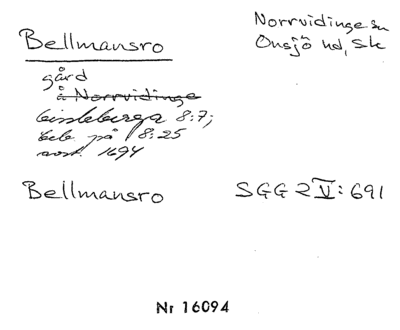 Bellmansro
Norrvidinge sn
Onsjö hd, Sk
gård
å Norrvidinge
8:7;
på 18:25
1694
Bellmansro
SGG 2 V: 691
Nr 16094